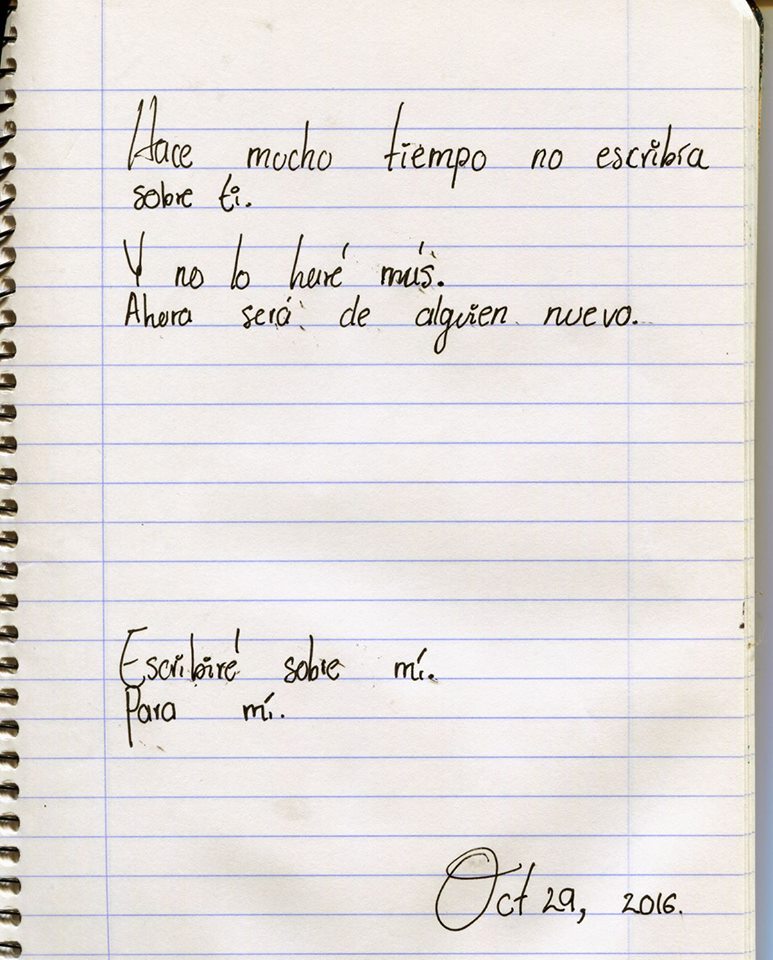 Hace mucho tiempo no escribía
sobre ti.
Y no lo haré más.
Ahora será de alguien nuevo.
Escribiré sobre mí.
Para mí.
Oct 29, 2016.